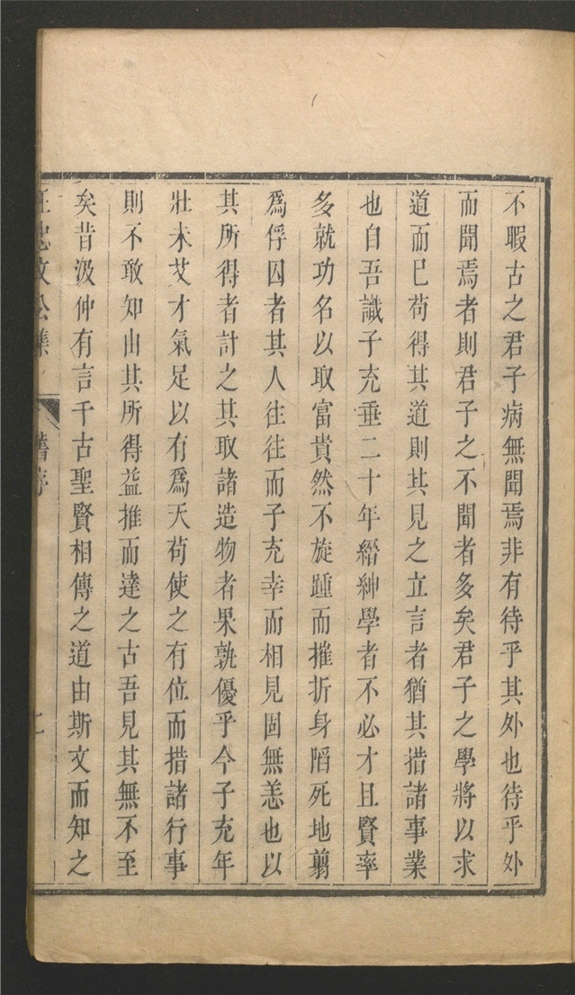 不暇古之君子病無聞焉非有待乎其外也待乎外
而聞焉者則君子之不聞者多矣君子之學將以求
道而已苟得其道則其見之立言者猶其措諸事業
也自吾識子充垂二十年縉紳學者不必才且賢率
多就功名以取富貴然不旋踵而摧折身䧟死地翦
爲俘囚者其人往往而子充幸而相見固無恙也以
其所得者計之其取諸造物者果孰優乎今子充年
壯未艾才氣足以有爲天苟使之有位而措諸行事
則不敢知由其所得益推而達之古吾見其無不至
矣昔汲仲有言千古聖賢相傳之道由斯文而知之
王忠文公集 舊序